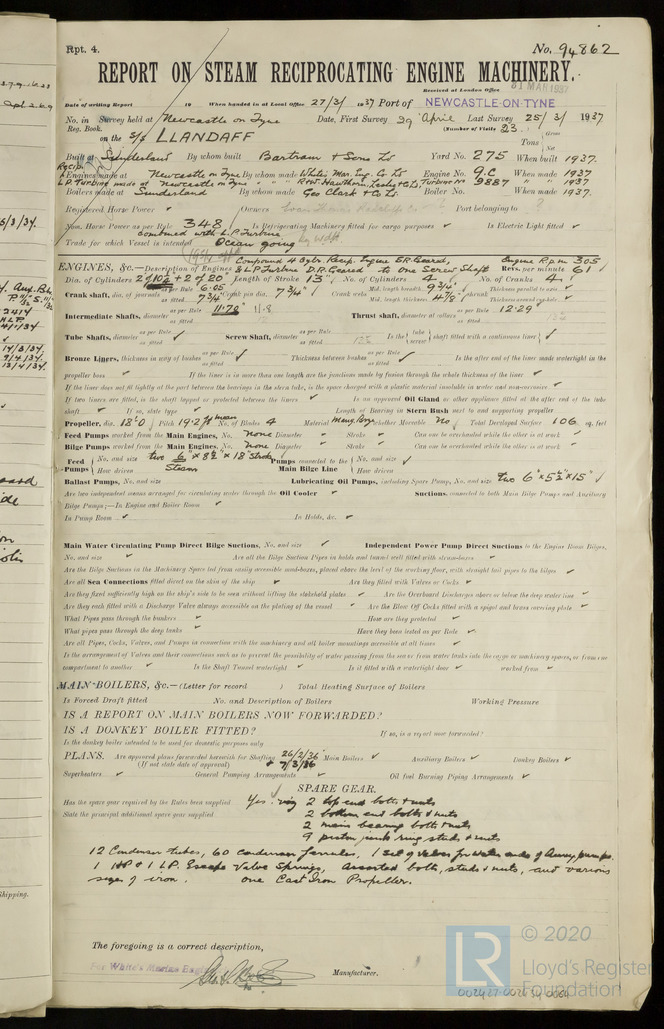 Rpt. 4. No. 94862
REPORT ON STEAM RECIPROCATING ENGINE MACHINERY.
Received at London Office 31 MAR 1937
Date of writing Report 19 When handed in at Local Office 27/3/1937 Port of NEWCASTLE-ON-TYNE
No. in Survey held at Newcastle on Tyne Date, First Survey 29 April Last Survey 25/3/1937
Reg. Book. (Number of Visits 23
on the S/S LLANDAFF Tons Gross Net
Built at Sunderland By whom built Bartram & Sons Ld Yard No. 275 When built 1937.
Recip. Engines made at Newcastle on Tyne By whom made Whites Mar. Eng. Co Ld Engine No. 9.C When made 1937.
L.P. Turbine made at Newcastle on Tyne " " " R & W Hawthorn, Leslie & Co Ld Turbine No 9887 " " 1937
Boilers made at Sunderland By whom made Geo Clark & Co Ld. Boiler No. When made 1937.
Registered Horse Power Owners Port belonging to ?
Nom. Horse Power as per Rule 348 Is Refrigerating Machinery fitted for cargo purposes Is Electric Light fitted
Combined with L.P. Turbine
Trade for which Vessel is intended Ocean going
Compound 4 Cylr Recip. Engine S.R. Geared, Engine R.p.m 305
ENGINES, &c.—Description of Engines & L.P Turbine D.R. Geared to One Screw Shaft Revs. per minute 61
Dia. of Cylinders 2 of 10½ + 2 of 20" Length of Stroke 13" No. of Cylinders 4 No. of Cranks 4
Crank shaft, dia. of journals as per Rule 6.05 as fitted 7¾" Crank pin dia. 7¾" Crank webs Mid. length breadth 9¾" Mid. length thickness 4⅞" Thickness parallel to axis Thickness around eye-hole shrunk
Intermediate Shafts, diameter as per Rule 11.78 11.8 as fitted Thrust shaft, diameter at collars as per Rule 12.29 as fitted
Tube Shafts, diameter as per Rule as fitted Screw Shaft, diameter as per Rule as fitted Is the tube screw shaft fitted with a continuous liner
Bronze Liners, thickness in way of bushes as per Rule as fitted Thickness between bushes as per Rule as fitted Is the after end of the liner made watertight in the
propeller boss If the liner is in more than one length are the junctions made by fusion through the whole thickness of the liner
If the liner does not fit tightly at the part between the bearings in the stern tube, is the space charged with a plastic material insoluble in water and non-corrosive
If two liners are fitted, is the shaft lapped or protected between the liners Is an approved Oil Gland or other appliance fitted at the after end of the tube
shaft If so, state type Length of Bearing in Stern Bush next to and supporting propeller
Propeller, dia. 18'0 Pitch 19.2 ft mean No. of Blades 4 Material Mang. Bronze whether Moveable No Total Developed Surface 106 sq. feet
Feed Pumps worked from the Main Engines, No. None Diameter Stroke Can one be overhauled while the other is at work
Bilge Pumps worked from the Main Engines, No. None Diameter Stroke Can one be overhauled while the other is at work
Feed Pumps No. and size two 6" x 8½" x 18" Stroke Pumps connected to the Main Bilge Line No. and size
How driven Steam How driven
Ballast Pumps, No. and size Lubricating Oil Pumps, including Spare Pump, No. and size two 6" x 5½" x 15"
Are two independent means arranged for circulating water through the Oil Cooler Suctions, connected to both Main Bilge Pumps and Auxiliary
Bilge Pumps;—In Engine and Boiler Room
In Pump Room In Holds, &c.
Main Water Circulating Pump Direct Bilge Suctions, No. and size Independent Power Pump Direct Suctions to the Engine Room Bilges,
No. and size Are all the Bilge Suction Pipes in holds and tunnel well fitted with strum-boxes
Are the Bilge Suctions in the Machinery Space led from easily accessible mud-boxes, placed above the level of the working floor, with straight tail pipes to the bilges
Are all Sea Connections fitted direct on the skin of the ship Are they fitted with Valves or Cocks
Are they fixed sufficiently high on the ship's side to be seen without lifting the stokehold plates Are the Overboard Discharges above or below the deep water line
Are they each fitted with a Discharge Valve always accessible on the plating of the vessel Are the Blow Off Cocks fitted with a spigot and brass covering plate
What Pipes pass through the bunkers How are they protected
What pipes pass through the deep tanks Have they been tested as per Rule
Are all Pipes, Cocks, Valves, and Pumps in connection with the machinery and all boiler mountings accessible at all times
Is the arrangement of Valves and their connections such as to prevent the possibility of water passing from the sea or from water tanks into the cargo or machinery spaces, or from one
compartment to another Is the Shaft Tunnel watertight Is it fitted with a watertight door worked from
MAIN BOILERS, &c.—(Letter for record ) Total Heating Surface of Boilers
Is Forced Draft fitted No. and Description of Boilers Working Pressure
IS A REPORT ON MAIN BOILERS NOW FORWARDED?
IS A DONKEY BOILER FITTED? If so, is a report now forwarded?
Is the donkey boiler intended to be used for domestic purposes only
PLANS. Are approved plans forwarded herewith for Shafting 26/2/36 + 7/3/36 Main Boilers Auxiliary Boilers Donkey Boilers
(If not state date of approval)
Superheaters General Pumping Arrangements Oil fuel Burning Piping Arrangements
SPARE GEAR.
Has the spare gear required by the Rules been supplied Yes. viz 2 top end bolts & nuts
State the principal additional spare gear supplied 2 bottom end bolts & nuts
2 main bearing bolts & nuts
9 piston junk ring studs & nuts
12 Condenser tubes, 60 condenser ferrules, 1 set of valves for water ends of Auxy pumps.
1 HP & 1 L.P. Escape Valve Springs, Assorted bolts, studs & nuts, and various
sizes of iron. One Cast Iron Propeller.
The foregoing is a correct description,
For White's Marine Eng
Manufacturer.
© 2020
LR Lloyd's Register
Foundation